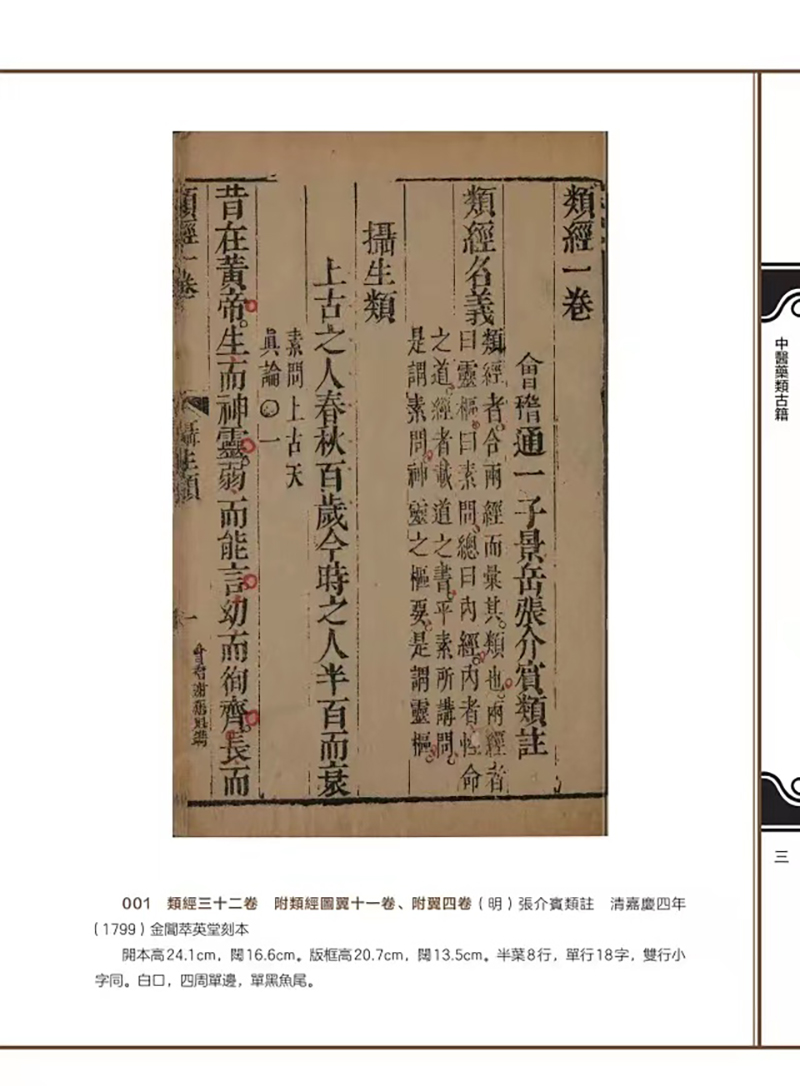 類經一卷
會稽通一子景岳張介賓類註
類經名義
類經者合兩經而彙其類也兩經者
曰靈樞曰素問總曰內經內者性命
之道經者載道之書平素所講問
是謂素問神靈之樞要是謂靈樞
攝生類
上古之人春秋百歲今時之人半百而衰
素問上古天
眞論〇一
昔在黃帝生而神靈弱而能言幼而徇齊長而
類經一卷
攝生類
一
中醫藥類古籍
三
001 類經三十二卷 附類經圖翼十一卷、附翼四卷（明）張介賓類註 清嘉慶四年
（1799）金閶萃英堂刻本
開本高24.1cm，闊16.6cm。版框高20.7cm，闊13.5cm。半葉8行，單行18字，雙行小
字同。白口，四周單邊，單黑魚尾。